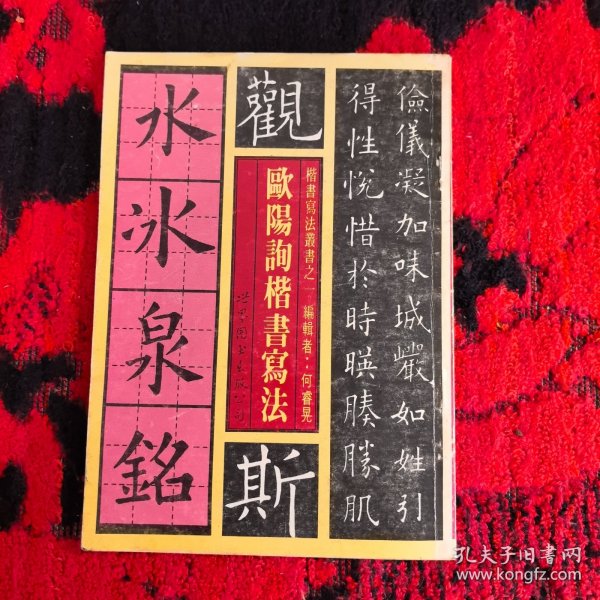 儉儀凝加味城巖如姓引
得性悅惜於時暎膝勝肌
觀
斯
楷書寫法叢書之一 編輯者：何睿晃
歐陽詢楷書寫法
世界图书出版公司
水
冰
泉
銘
孔夫子旧书网
www.kongfz.com